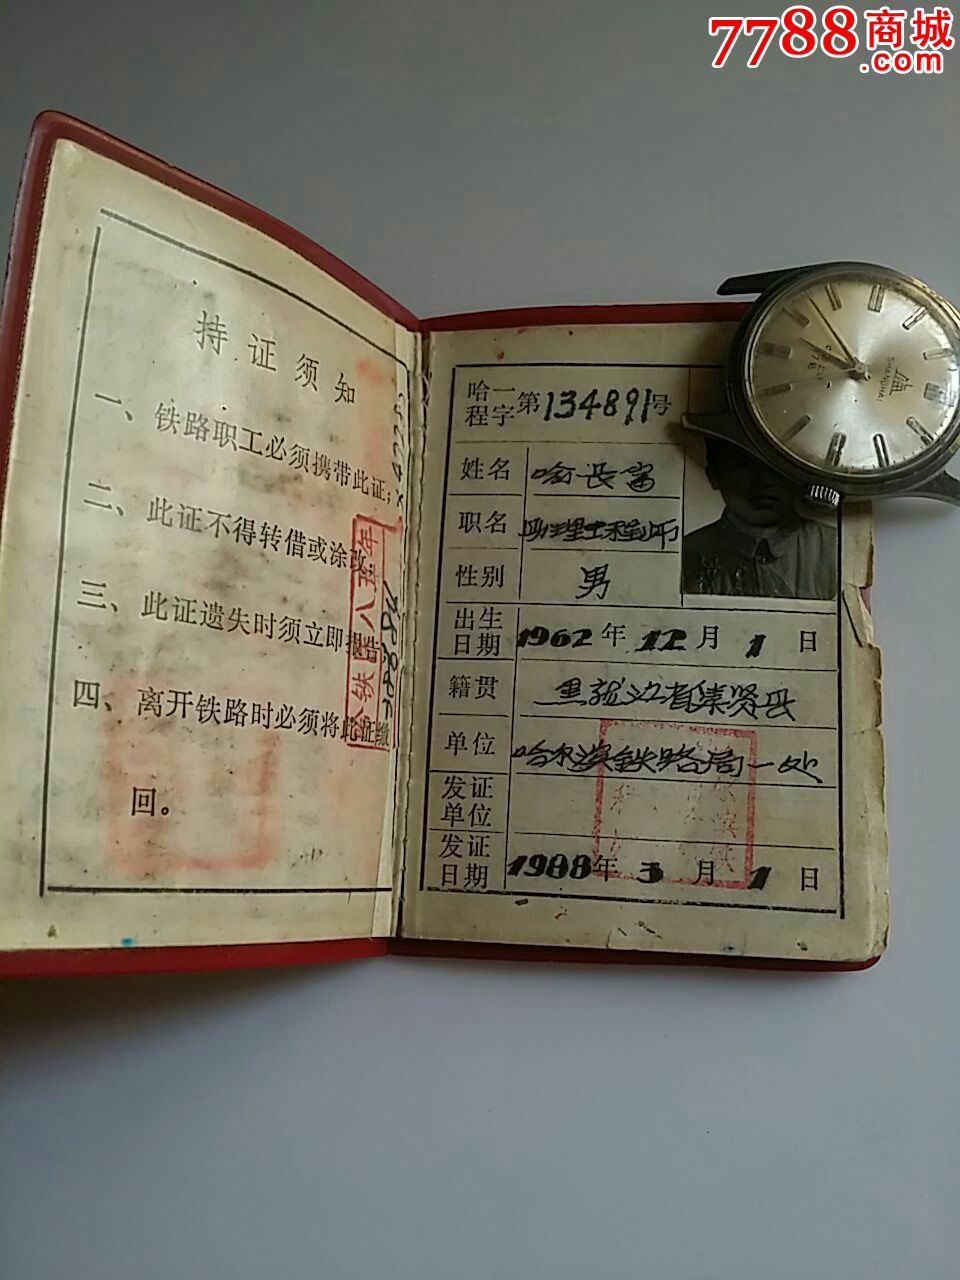 7788商城
.com
持证须知
一、铁路职工必须携带此证；
二、此证不得转借或涂改。
三、此证遗失时须立即报告。
四、离开铁路时必须将此证缴
回。
哈一
程字
第134891号
姓名 喻长富
职名 助理工程师
性别 男
出生
日期
1962年12月1日
籍贯 黑龙江省集贤县
单位 哈尔滨铁路局一处
发证
单位
发证
日期
1988年3月1日
SHANGHAI